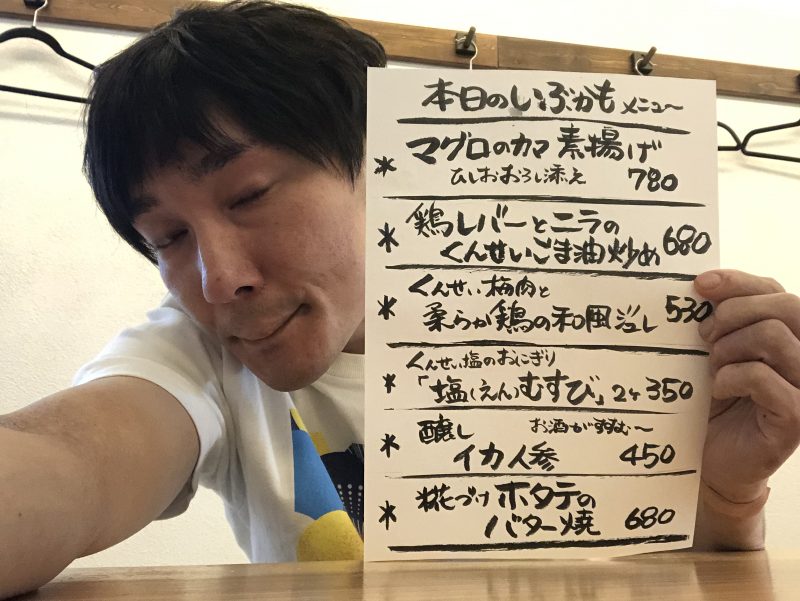 本日のいぶかもメニュ〜
* マグロのカマ素揚げ
ひしおおろし添え 780
* 鶏レバーとニラの
くんせいごま油炒め 680
* くんせい梅肉と
柔らか鶏の和風ジュレ 530
くんせい塩のおにぎり
* 「塩(えん)むすび」2ヶ 350
* 醸し お酒がすすむ〜
イカ人参 450
* 糀づけホタテの
バター焼 680